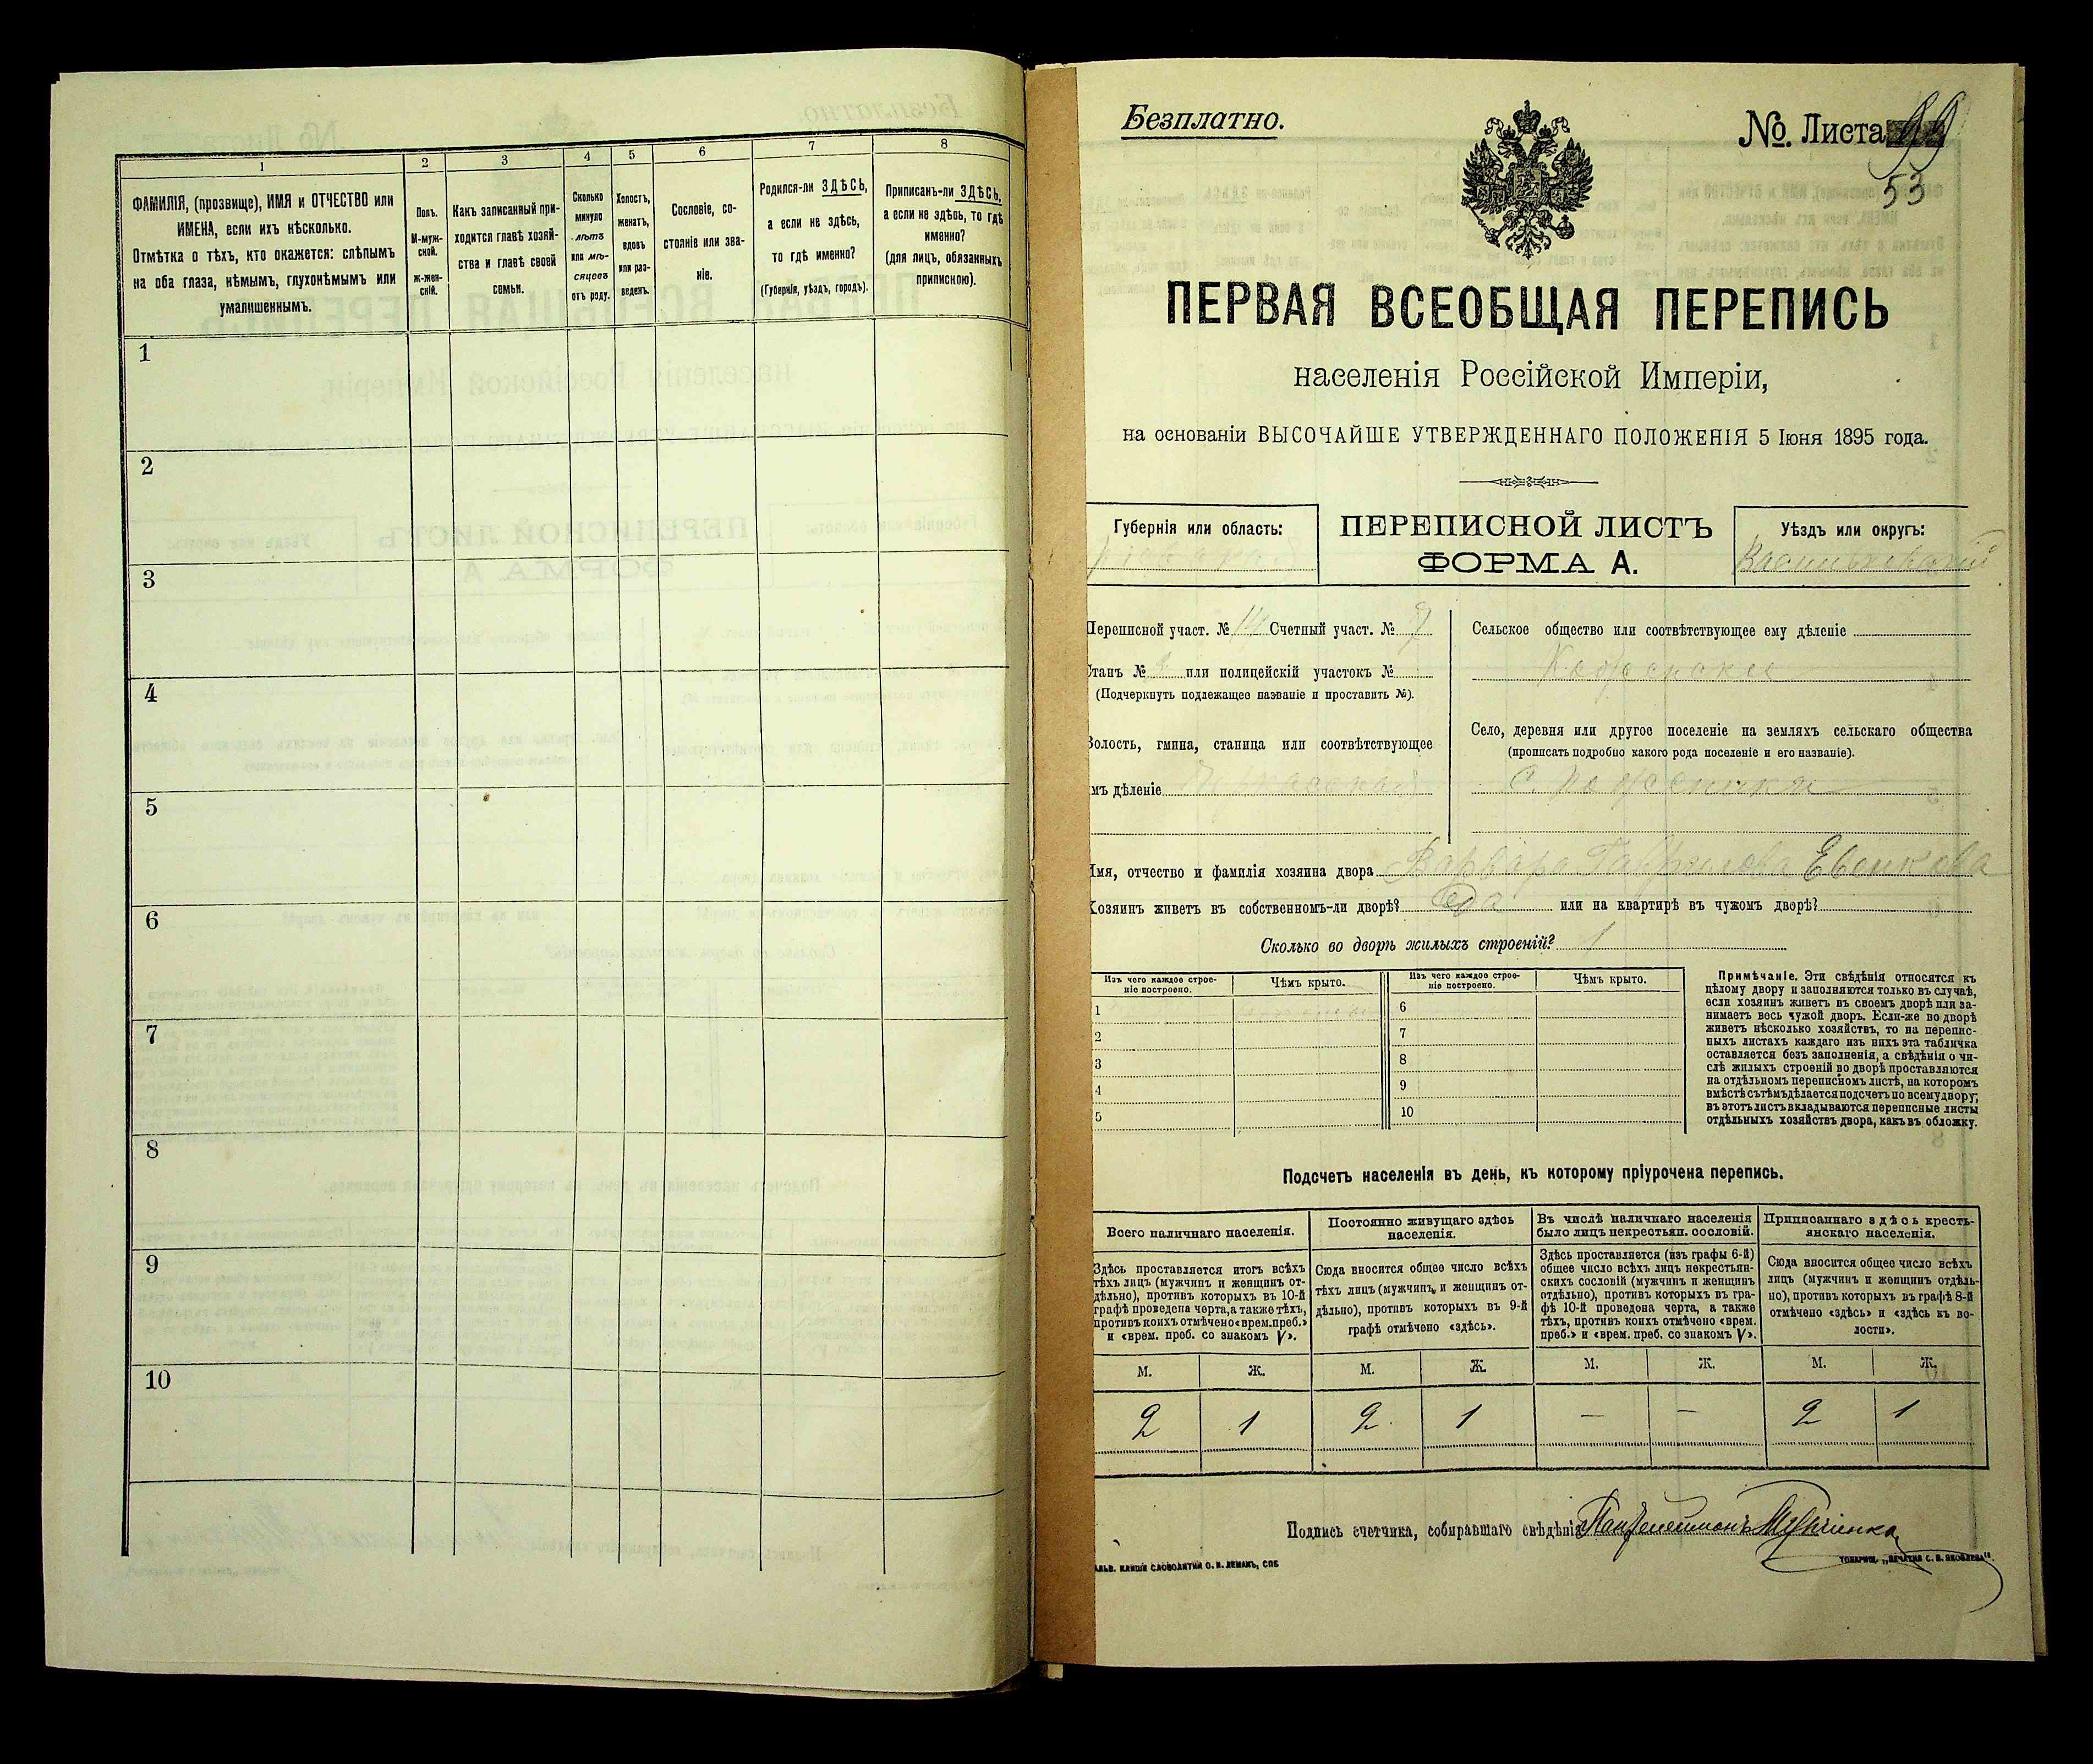 1
2
3
4
5
6
7
8
ФАМИЛІЯ, (прозвище), ИМЯ и ОТЧЕСТВО или
ИМЕНА, если ихъ нѣсколько.
Отмѣтка о тѣхъ, кто окажется: слѣпымъ
на оба глаза, нѣмымъ, глухонѣмымъ или
умалишеннымъ.
Полъ.
М-муж-
ской.
ж-жен-
скій.
Какъ записанный при-
ходится главѣ хозяй-
ства и главѣ своей
семьи.
Сколько
минуло
лѣтъ
или мѣ-
сяцевъ
отъ роду.
Холостъ,
женатъ,
вдовъ
или раз-
веденъ.
Сословіе, со-
стояніе или зва-
ніе.
Родился-ли ЗДѢСЬ,
а если не здѣсь,
то гдѣ именно?
(Губернія, уѣздъ, городъ).
Приписанъ-ли ЗДѢСЬ,
а если не здѣсь, то гдѣ
именно?
(для лицъ, обязанныхъ
припискою).
1
2
3
4
5
6
7
8
9
10
Безплатно.
№. Листа 99
53
ПЕРВАЯ ВСЕОБЩАЯ ПЕРЕПИСЬ
населенія Россійской Имперіи,
на основаніи ВЫСОЧАЙШЕ УТВЕРЖДЕННАГО ПОЛОЖЕНІЯ 5 Іюня 1895 года.
Губернія или область:
ПЕРЕПИСНОЙ ЛИСТЪ
ФОРМА А.
Уѣздъ или округъ:
Васильковскій
Переписной участ. № 14 Счетный участ. № 9
Станъ № 2 или полицейскій участокъ №
(Подчеркнуть подлежащее названіе и проставить №).
Волость, гмина, станица или соотвѣтствующее
имъ дѣленіе
Сельское общество или соотвѣтствующее ему дѣленіе
Село, деревня или другое поселеніе на земляхъ сельскаго общества
(прописать подробно какого рода поселеніе и его названіе).
Имя, отчество и фамилія хозяина двора Варвара Гаврилова Евенкова
Хозяинъ живетъ въ собственномъ-ли дворѣ? Да или на квартирѣ въ чужомъ дворѣ?
Сколько во дворѣ жилыхъ строеній? 1
Изъ чего каждое строе-
ніе построено.
Чѣмъ крыто.
Изъ чего каждое строе-
ніе построено.
Чѣмъ крыто.
1
2
3
4
5
6
7
8
9
10
Примѣчаніе. Эти свѣдѣнія относятся къ
цѣлому двору и заполняются только въ случаѣ,
если хозяинъ живетъ въ своемъ дворѣ или за-
нимаетъ весь чужой дворъ. Если-же во дворѣ
живетъ нѣсколько хозяйствъ, то на перепис-
ныхъ листахъ каждаго изъ нихъ эта табличка
оставляется безъ заполненія, а свѣдѣнія о чи-
слѣ жилыхъ строеній во дворѣ проставляются
на отдѣльномъ переписномъ листѣ, на которомъ
вмѣстѣ съ тѣмъ дѣлается подсчетъ по всему двору;
въ этотъ листъ вкладываются переписные листы
отдѣльныхъ хозяйствъ двора, какъ въ обложку.
Подсчетъ населенія въ день, къ которому пріурочена перепись.
Всего наличнаго населенія.
Постоянно живущаго здѣсь
населенія.
Въ числѣ наличнаго населенія
было лицъ некрестьян. сословій.
Приписаннаго здѣсь кресть-
янскаго населенія.
Здѣсь проставляется итогъ всѣхъ
тѣхъ лицъ (мужчинъ и женщинъ от-
дѣльно), противъ которыхъ въ 10-й
графѣ проведена черта, а также тѣхъ,
противъ коихъ отмѣчено «врем. преб.»
и «врем. преб. со знакомъ V».
Сюда вносится общее число всѣхъ
тѣхъ лицъ (мужчинъ и женщинъ от-
дѣльно), противъ которыхъ въ 9-й
графѣ отмѣчено «здѣсь».
Здѣсь проставляется (изъ графы 6-й)
общее число всѣхъ лицъ некрестьян-
скихъ сословій (мужчинъ и женщинъ
отдѣльно), противъ которыхъ въ гра-
фѣ 10-й проведена черта, а также
тѣхъ, противъ коихъ отмѣчено «врем.
преб.» и «врем. преб. со знакомъ V».
Сюда вносится общее число всѣхъ
лицъ (мужчинъ и женщинъ отдѣль-
но), противъ которыхъ въ графѣ 8-й
отмѣчено «здѣсь» и «здѣсь къ во-
лости».
М. Ж. М. Ж. М. Ж. М. Ж.
2 1 2 1 — — 2 1
Подпись счетчика, собиравшаго свѣдѣнія
ГАЛЬВ. КЛИШЕ СЛОВОЛИТНИ О. И. ЛЕМАНЪ, СПБ
ТОВАРИЩ. „ПЕЧАТНЯ С. П. ЯКОВЛЕВА".